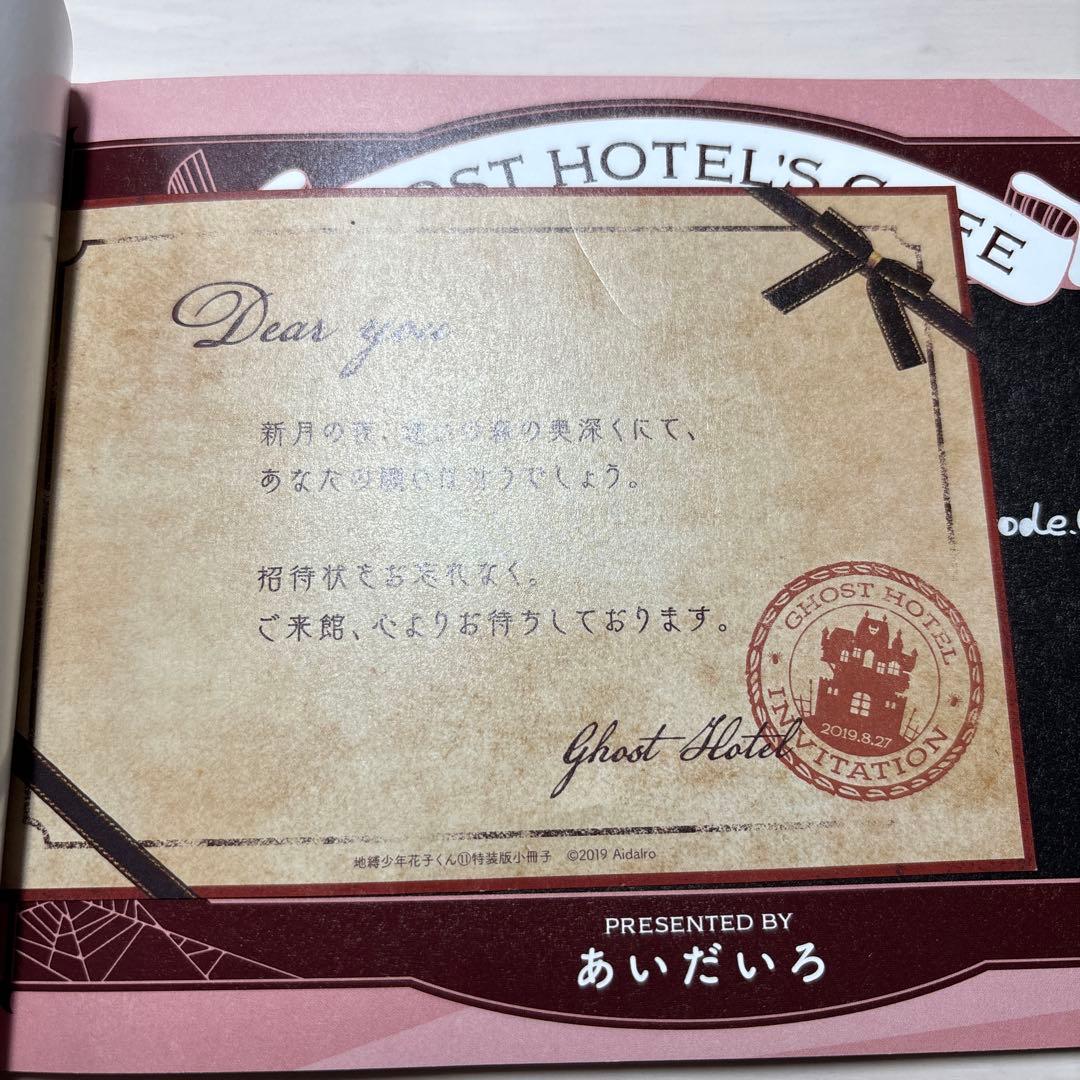 HOTEL'S
Dear you
新月の夜、迷いの森の奥深くにて、
あなたの願いは叶うでしょう。
招待状をお忘れなく。
ご来館、心よりお待ちしております。
Ghost Hotel
GHOST HOTEL
2019.8.27
INVITATION
地縛少年花子くん⑪特装版小冊子 ©2019 AidaIro
PRESENTED BY
あいだいろ